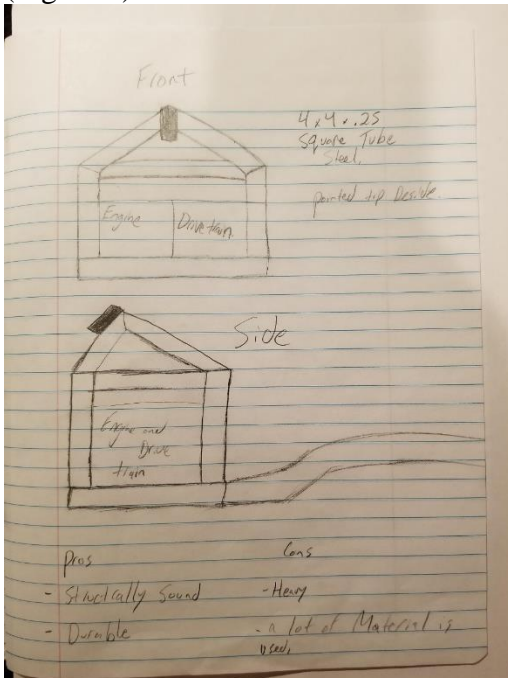 Front
4 x 4 x .25
Square Tube
Steel.
pointed tip
Engine
Drivetrain
Side
Engine and
Drive
train
Pros
Cons
- Structrally Sound
- Heavy
- Durable
- A lot of Material is
used.